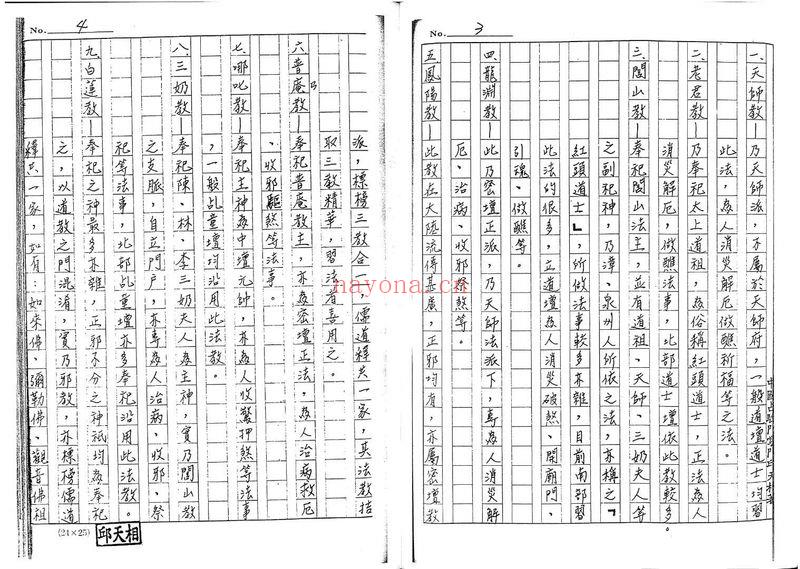 No. 3
一、天師教—乃天師派，亦屬於天師府，一般道壇道士均習
此法，為人消災解厄做醮祈福等之法。
二、老君教—乃奉祀太上道祖，為俗稱紅頭道士，正法為人
消災解厄，做醮法事，北部道士壇依此教較多。
三、閭山教—奉祀閭山法主，並有道祖、天師、三奶夫人等
之副祀神，乃漳、泉州人所依之法，亦稱之「
紅頭道士」，所做法事較多亦雜，目前南部習
此法的很多，立道壇為人消災破煞、開廟門、
引魂、做醮等。
四、龍淵教—此乃密壇正派，乃天師法派下，專為人消災解
厄、治病、收邪煞等。
五、鳳陽教—此教在大陸流傳甚廣，正邪均有，亦屬密壇教
No. 4
派，標榜三教合一，儒道釋共一家，其法教括
取三教精華，習法有善用之。
六、普庵教—奉祀普庵教主，亦為密壇正法，為人治病救厄
、收邪驅煞等法事。
七、哪叱教—奉祀主神為中壇元帥，亦為人收驚押煞等法事
，一般乩童壇均沿用此法教。
八、三奶教—奉祀陳、林、李三奶夫人為主神，實乃閭山教
之支脈，自立門戶，亦專為人治病、收邪、祭
祀等法事，北部乩童壇亦多奉祀沿用此法教。
九、白蓮教—奉祀之神最多亦雜，正邪不分之神祇均為奉祀
之，以道教之門混淆，實乃邪教，亦標榜儒道
釋共一家，如有：如來佛、彌勒佛、觀音佛祖
(24×25)
邱天相
nayona.cn